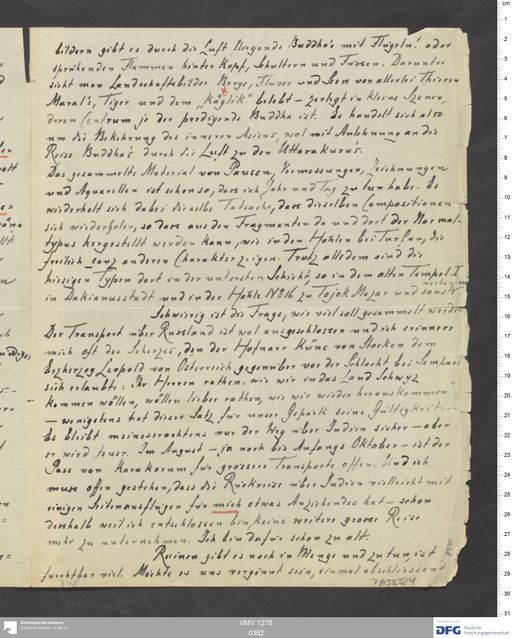 bildern gibt es durch die Luft fliegende Buddha's mit Flügeln! oder
sprühenden Flammen hinter Kopf, Schultern und Füssen. Darunter
sieht man Landschaftsbilder Berge, Flüsse und Seen von allerlei Thieren
Maral's, Tiger und dem „Käglik" belebt – zerlegt in kleine Szenen,
deren Centrum je der predigende Buddha ist. Es handelt sich also
um die Bekehrung des inneren Asiens, wol mit Anlehnung an die
Reise Buddha's durch die Luft zu den Uttarakuru's.
Das gesammelte Material von Pausen, Vermessungen, Zeichnungen
und Aquarellen ist schon so, dass ich Jahr und Tag zu tun habe. Es
wiederholt sich dabei dieselbe Tatsache, dass dieselben Compositionen
sich wiederholen, so dass aus den Fragmenten da und dort der Normal-
typus hergestellt werden kann, wie in den Höhlen bei Turfan, die
freilich ganz anderen Charakter zeigen. Trotz alledem sind die
hiesigen Typen dort in der untersten Schicht so in dem alten Tempel I
in Dakianusstadt und in der Höhle No 16 zu Tojok Mazar und sonst
Schwierig ist die Frage, wie viel soll gesammelt werden
Der Transport über Russland ist wol ausgeschlossen und ich erinnere
mich oft des Scherzes, den der Hofnarr Küne von Stocken dem
Erzherzog Leopold von Österreich gegenüber vor der Schlacht bei Sempach
sich erlaubte: Ihr Herren rathen, wie wir in das Land Schwyz
kommen wöllen, wöllen lieber rathen, wie wir wieder herauskommen"
– wenigstens hat dieser Satz für unser Gepäck seine Gültigkeit. –
Es bleibt meines erachtens nur der Weg über Indien sicher – aber
er wird teuer. Im August – ja noch bis Anfangs Oktober – ist der
Pass von Karakorum für grössere Transporte offen. Und ich
muss offen gestehen, dass die Rückreise über Indien vielleicht mit
einigen Seitenausflügen für mich etwas Anziehendes hat – schon
deshalb weil ich entschlossen bin, keine weitere grosse Reise
mehr zu unternehmen. Ich bin dafür schon zu alt.
Ruinen gibt es noch in Menge und zu tun ist
furchtbar viel. Möchte es uns vergönnt sein, einmal abschliessend
TA5824
Ethnologisches Museum
Staatliche Museen zu Berlin
I/MV 1278
0352
DFG Deutsche
Forschungsgemeinschaft